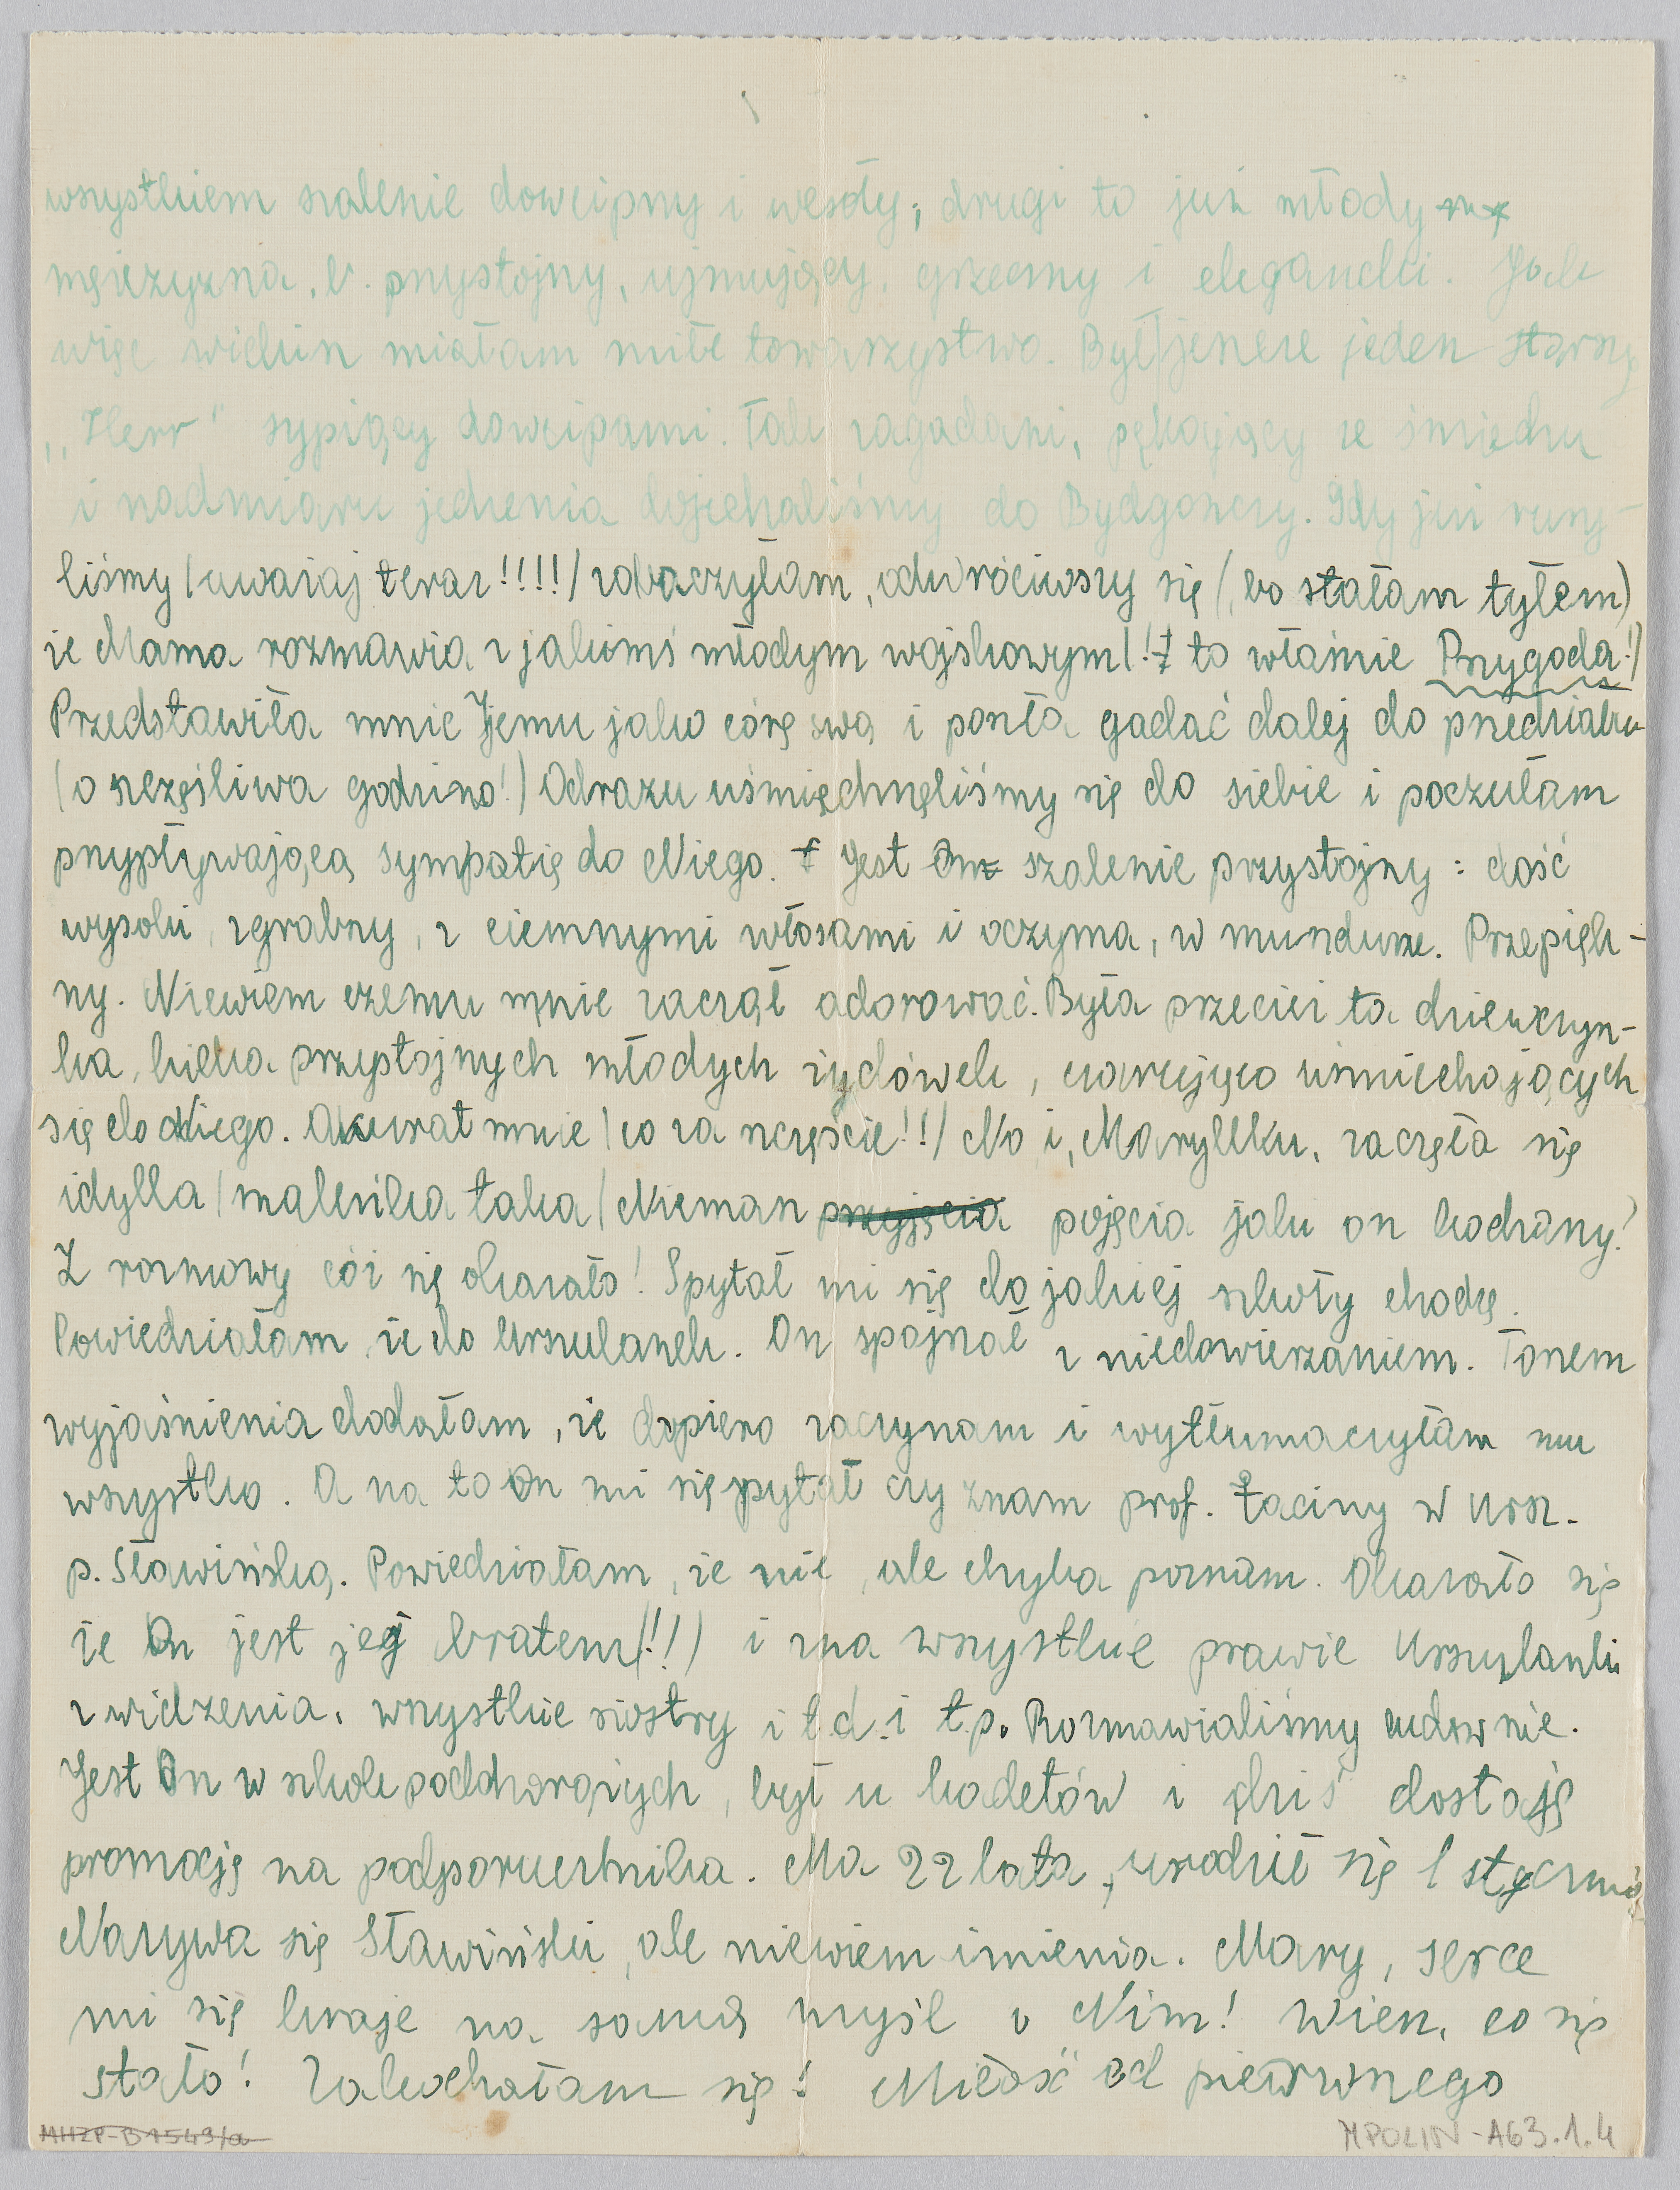 wszystkiem szalenie dowcipny i wesoły; drugi to już młody
mężczyzna, b. przystojny, ujmujący, grzeczny i elegancki. Jak
więc widzisz miałam miłe towarzystwo. Był jeszcze jeden starszy
„Herr" sypiący dowcipami. Tak zagadani, pękający ze śmiechu
i nadmiaru jedzenia dojechaliśmy do Bydgoszczy. Gdy już ruszy-
liśmy (uważaj teraz!!!!) zobaczyłam, odwróciwszy się (bo stałam tyłem)
że Mama rozmawia z jakimś młodym wojskowym (! to właśnie Przygoda!)
Przedstawiła mnie Jemu jako córę swą i poszła gadać dalej do przedziału
(o szczęśliwa godzino!) Odrazu uśmiechnęliśmy się do siebie i poczułam
przypływającą sympatię do Niego. Jest On szalenie przystojny: dość
wysoki, zgrabny, z ciemnymi włosami i oczyma, w mundurze. Przepięk-
ny. Niewiem czemu mnie zaczął adorować. Była przecież ta dziewczyn-
ka, kilka przystojnych młodych żydówek, czarująco uśmiechających
się do Niego. Akurat mnie (co za szczęście!!) No i, Maryllku, zaczęła się
idylla (maleńka taka) Niemasz przyjęcia pojęcia jak on kochany!
Z rozmowy cóż się okazało! Spytał mi się do jakiej szkoły chodzę.
Powiedziałam, że do Urszulanek. On spojrzał z niedowierzaniem. Tonem
wyjaśnienia dodałam, że dopiero zaczynam i wytłumaczyłam mu
wszystko. A na to On mi się pytał czy znam prof. łaciny w Ursz.
p. Sławińską. Powiedziałam, że nie, ale chyba poznam. Okazało się
że On jest jej bratem (!!) i zna wszystkie prawie Urszulanki
z widzenia, wszystkie siostry i t.d. i t.p. Rozmawialiśmy cudownie.
Jest On w szkole podchorążych, był u kadetów i dziś dostaję
promocję na podporucznika. Ma 22 lata, urodził się 1 stycznia
Nazywa się Sławiński, ale niewiem imienia. Mary, serce
mi się kraje na samą myśl o Nim! Wiesz, co się
stało! Zakochałam się! Miłość od pierwszego
MHZP-B1549/a
MPOLIN-A63.1.4